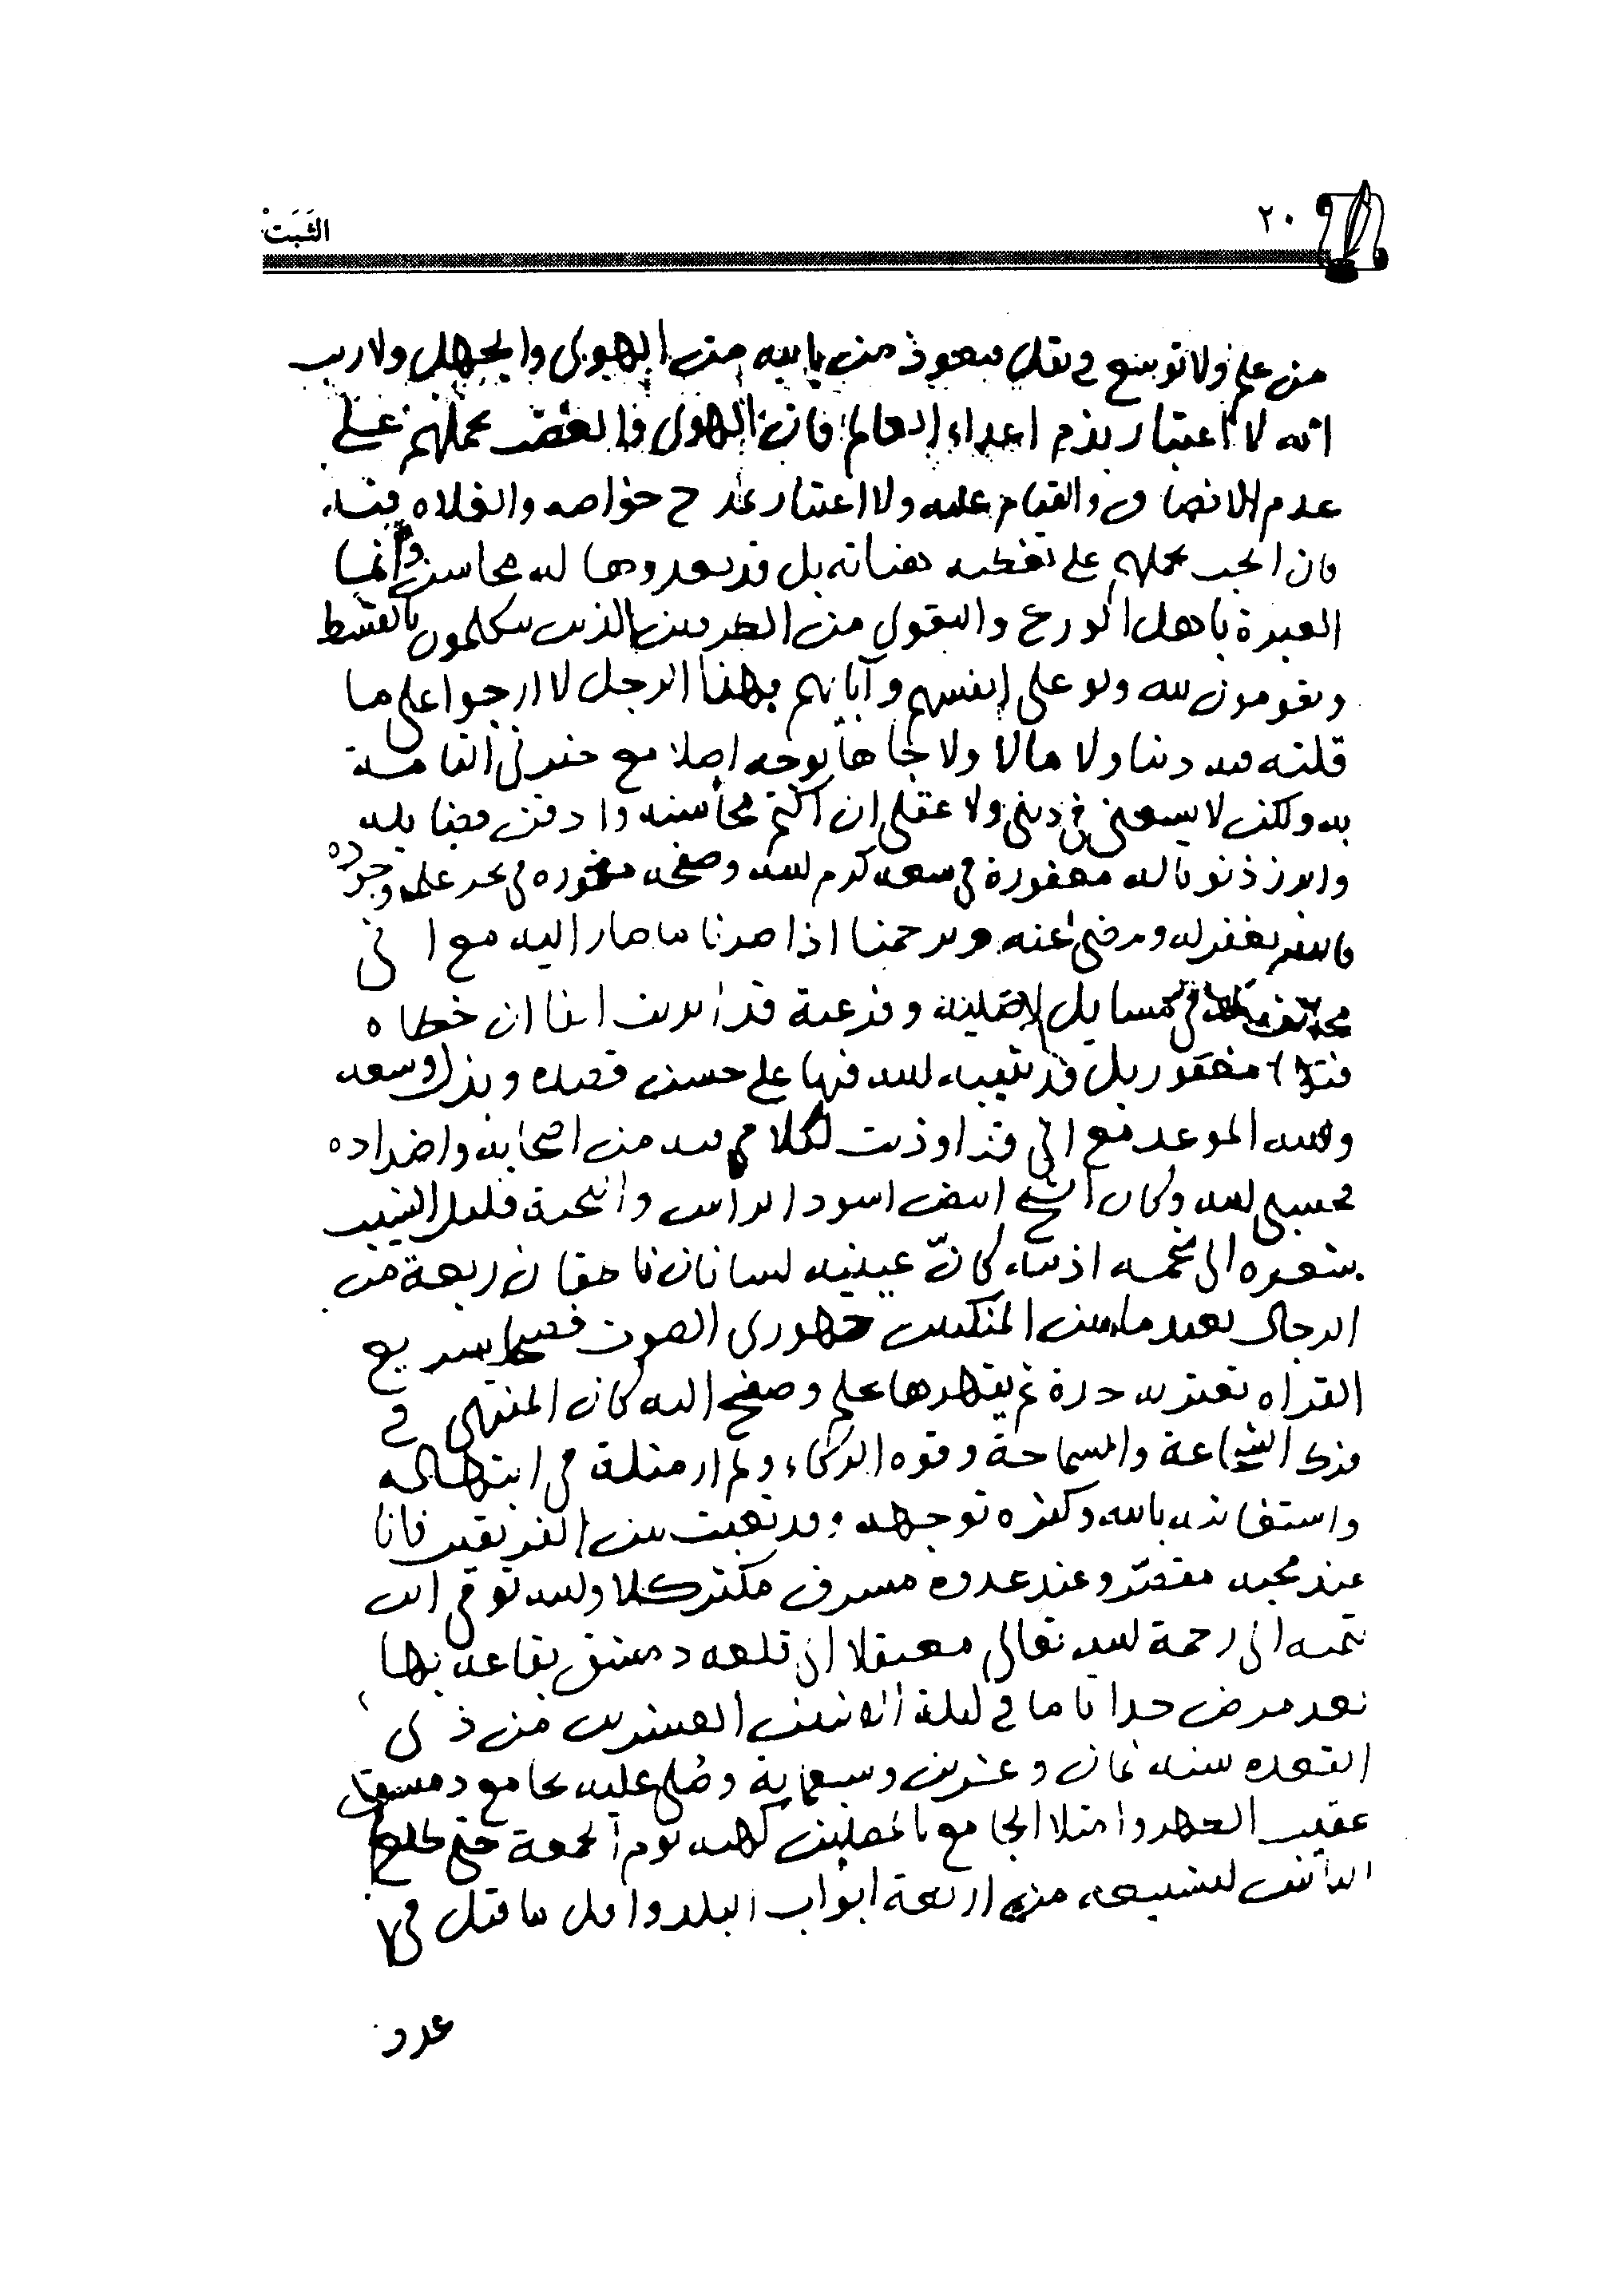 ٢٠
الثَّبَتْ
من علم ولا توسع في نقل فنعوذ من بالله من الهوى والجهل ولا ريب
انه لا اعتبار بذم اعداء العالم فان الهوى والغضب يحملهم على
عدم الانصاف والقيام عليه ولا اعتبار بمدح خواصه والغلاه فيه
فان الحب يحملهم على تغطيه هناته بل قد يعدوها له محاسن وانما
العبرة باهل الورع والتقوى من الطرفين الذين يتكلمون بالقسط
ويقومون لله ولو على انفسهم وآبائهم فهذا الرجل لا ارجوا على ما
قلته فيه دنيا ولا مالا ولا جاها بوجه اصلا مع خبرتي التامة
به ولكن لا يسعني في ديني ولا عقلي ان اكتم محاسنه وادفن فضايله
وابرز ذنوبا له مغفورة في سعه كرم الله وصفحه مغموره في بحر علمه وجوده
فالله يغفر له ويرضى عنه ويرحمنا اذا صرنا ما صار اليه مع اني
مخالف له في مسايل اصلية وفرعية قد ابديت انفا ان خطاه
فيها مغفور بل قد يثيبه الله فيها على حسن قصده وبذل وسعه
والله الموعد مع اني قد اوذيت لكلامي فيه من اصحابه واضداده
فحسبي الله وكان الشيخ ابيض اسود الراس واللحية قليل الشيب
شعره الى شحمه اذنيه كانّ عينيه لسانان ناطقان ربعة من
الرجال بعيد ما بين المنكبين جهوري الصوت فصيحا سريع
القراه تعتريه حدة ثم يقهرها بحلم وصفح اليه كان المنتهى في
فرط الشجاعة والسماحة وقوه الذكاء ولم ار مثله في ابتهاله
واستغاثته بالله وكثره توجهه وقد تعبت بين الفريقين فانا
عند محبه مقصّر وعند عدوه مسرف مكثر كلا والله توفي ابن
تيميه الى رحمة الله تعالى معتقلا الى قلعه دمشق بقاعه بها
بعد مرض جدا اياما في ليلة الاثنين العشرين من ذي
القعده سنه ثمان وعشرين وسبعماية وصُلي عليه بجامع دمشق
عقيب الظهر وامتلا الجامع بالمصلين كهيه يوم الجمعة حتى طلع
الناس لتشييعه من اربعة ابواب البلد واقل ما قيل في
عدد